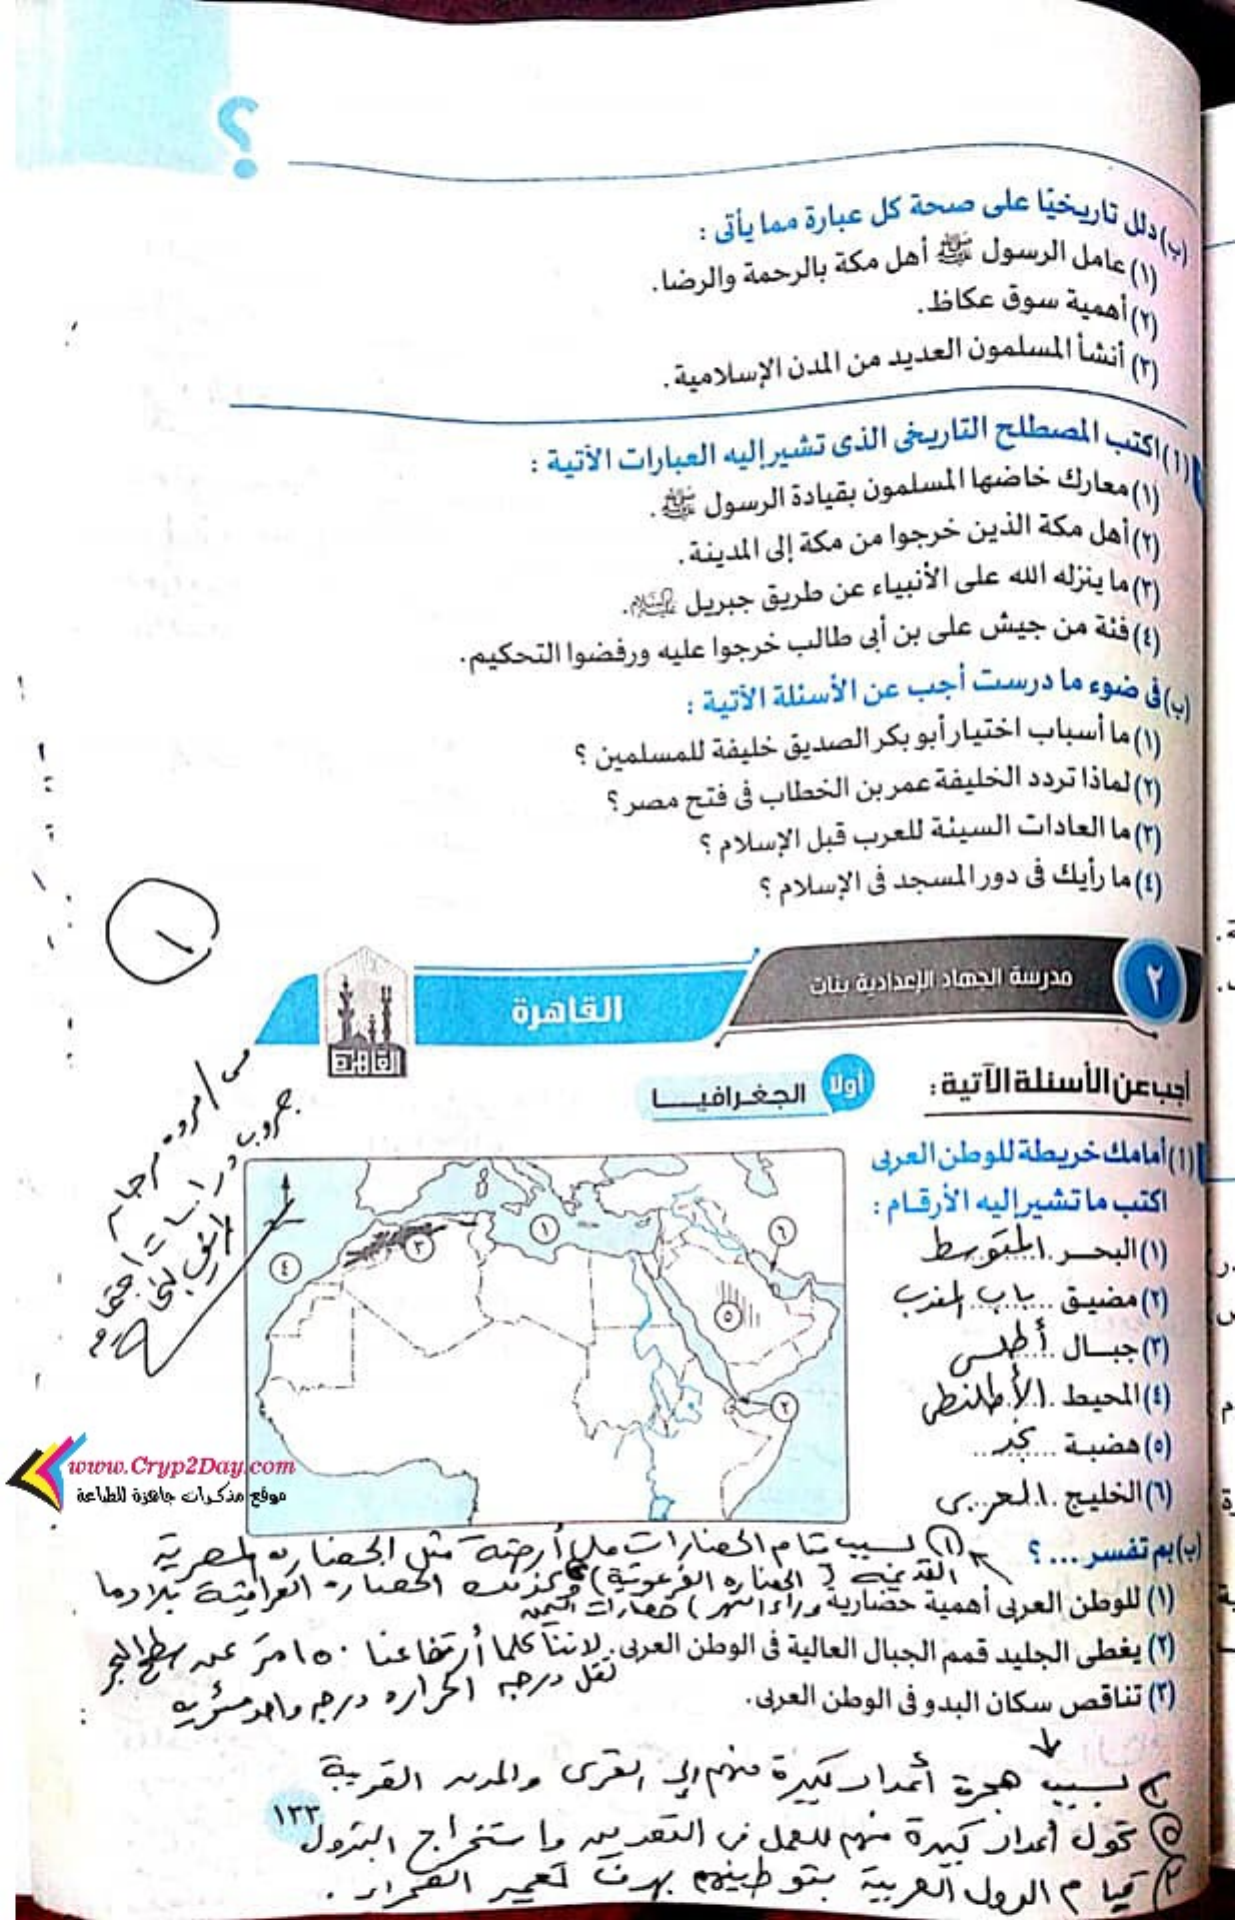 ؟
(ب) دلل تاريخيًا على صحة كل عبارة مما يأتى :
(١) عامل الرسول ﷺ أهل مكة بالرحمة والرضا.
(٢) أهمية سوق عكاظ.
(٣) أنشأ المسلمون العديد من المدن الإسلامية.
(أ) اكتب المصطلح التاريخى الذى تشير إليه العبارات الآتية :
(١) معارك خاضها المسلمون بقيادة الرسول ﷺ.
(٢) أهل مكة الذين خرجوا من مكة إلى المدينة.
(٣) ما ينزله الله على الأنبياء عن طريق جبريل عليه السلام.
(٤) فئة من جيش على بن أبى طالب خرجوا عليه ورفضوا التحكيم.
(ب) فى ضوء ما درست أجب عن الأسئلة الآتية :
(١) ما أسباب اختيار أبو بكر الصديق خليفة للمسلمين ؟
(٢) لماذا تردد الخليفة عمر بن الخطاب فى فتح مصر ؟
(٣) ما العادات السيئة للعرب قبل الإسلام ؟
(٤) ما رأيك فى دور المسجد فى الإسلام ؟
١
٢ مدرسة الجهاد الإعدادية بنات
القاهرة
القاهرة
أجب عن الأسئلة الآتية :
أولا الجغرافيا
(أ) أمامك خريطة للوطن العربى
اكتب ما تشير إليه الأرقام :
(١) البحر المتوسط
(٢) مضيق باب المندب
(٣) جبال أطلس
(٤) المحيط الأطلنطى
(٥) هضبة نجد
(٦) الخليج العربى
١
٢
٣
٤
٥
٦
www.Cryp2Day.com
موقع مذكرات جاهزة للطباعة
(ب) بم تفسر ... ؟
بسبب قيام الحضارات على أرضه مثل الحضاره المصرية
القديمة (الحضاره الفرعونية) وكذلك الحضاره العراقية بلاد ما
وراء النهر) حضارات اليمن
(١) للوطن العربى أهمية حضارية
(٢) يغطى الجليد قمم الجبال العالية فى الوطن العربى.
لاننا كلما أرتفاعنا ١٥٠ متر عن سطح البحر
تقل درجه الحراره درجه واحد مئويه
(٣) تناقص سكان البدو فى الوطن العربى.
بسبب هجرة أعداد كبيرة منهم إلى القرى والمدن القريبة
تحول أعداد كبيرة منهم للعمل فى التعدين واستخراج البترول
قيام الدول العربية بتوطينهم بهدف تعمير الصحراء .
١٣٣